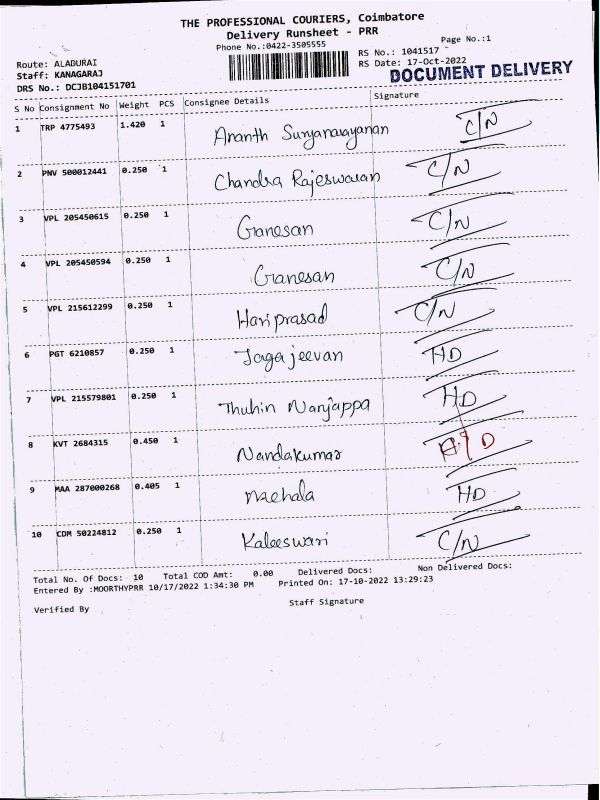 THE PROFESSIONAL COURIERS, Coimbatore
Delivery Runsheet - PRR
Phone No.:0422-3505555
Page No.:1
Route: ALADURAI
Staff: KANAGARAJ
DRS No.: DCJB104151701
RS No.: 1041517
RS Date: 17-Oct-2022
DOCUMENT DELIVERY
S No Consignment No Weight PCS Consignee Details Signature
1 TRP 4775493 1.420 1 Ananth Suryanarayanan C/N
2 PNV 500012441 0.250 1 Chandra Rajeswaran C/N
3 VPL 205450615 0.250 1 Ganesan C/N
4 VPL 205450594 0.250 1 Ganesan C/N
5 VPL 215612299 0.250 1 Hariprasad C/N
6 PGT 6210857 0.250 1 Jagajeevan HD
7 VPL 215579801 0.250 1 Thuhin Nanjappa HD
8 KVT 2684315 0.450 1 Nandakumar D
9 MAA 287000268 0.405 1 HD
10 CDM 50224812 0.250 1 Kaleeswari C/N
Total No. Of Docs: 10 Total COD Amt: 0.00 Delivered Docs: Non Delivered Docs:
Entered By :MOORTHYPRR 10/17/2022 1:34:30 PM Printed On: 17-10-2022 13:29:23
Verified By Staff Signature